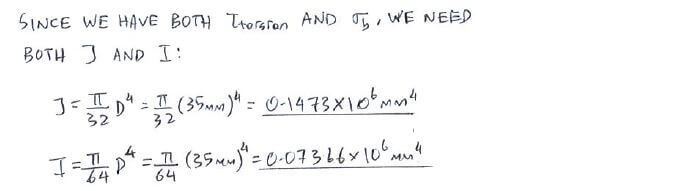 SINCE WE HAVE BOTH τtorsion AND σb, WE NEED
BOTH J AND I:
J = π/32 D⁴ = π/32 (35mm)⁴ = 0.1473×10⁶ mm⁴
I = π/64 D⁴ = π/64 (35mm)⁴ = 0.07366×10⁶ mm⁴